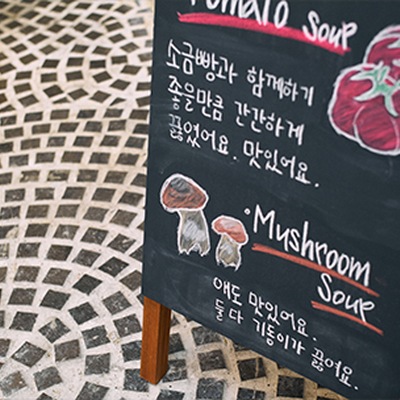 Tomato Soup
소금빵과 함께하기
좋을만큼 간간하게
끓였어요. 맛있어요.
Mushroom
Soup
얘도 맛있어요.
둘 다 기똥이가 끓여요.